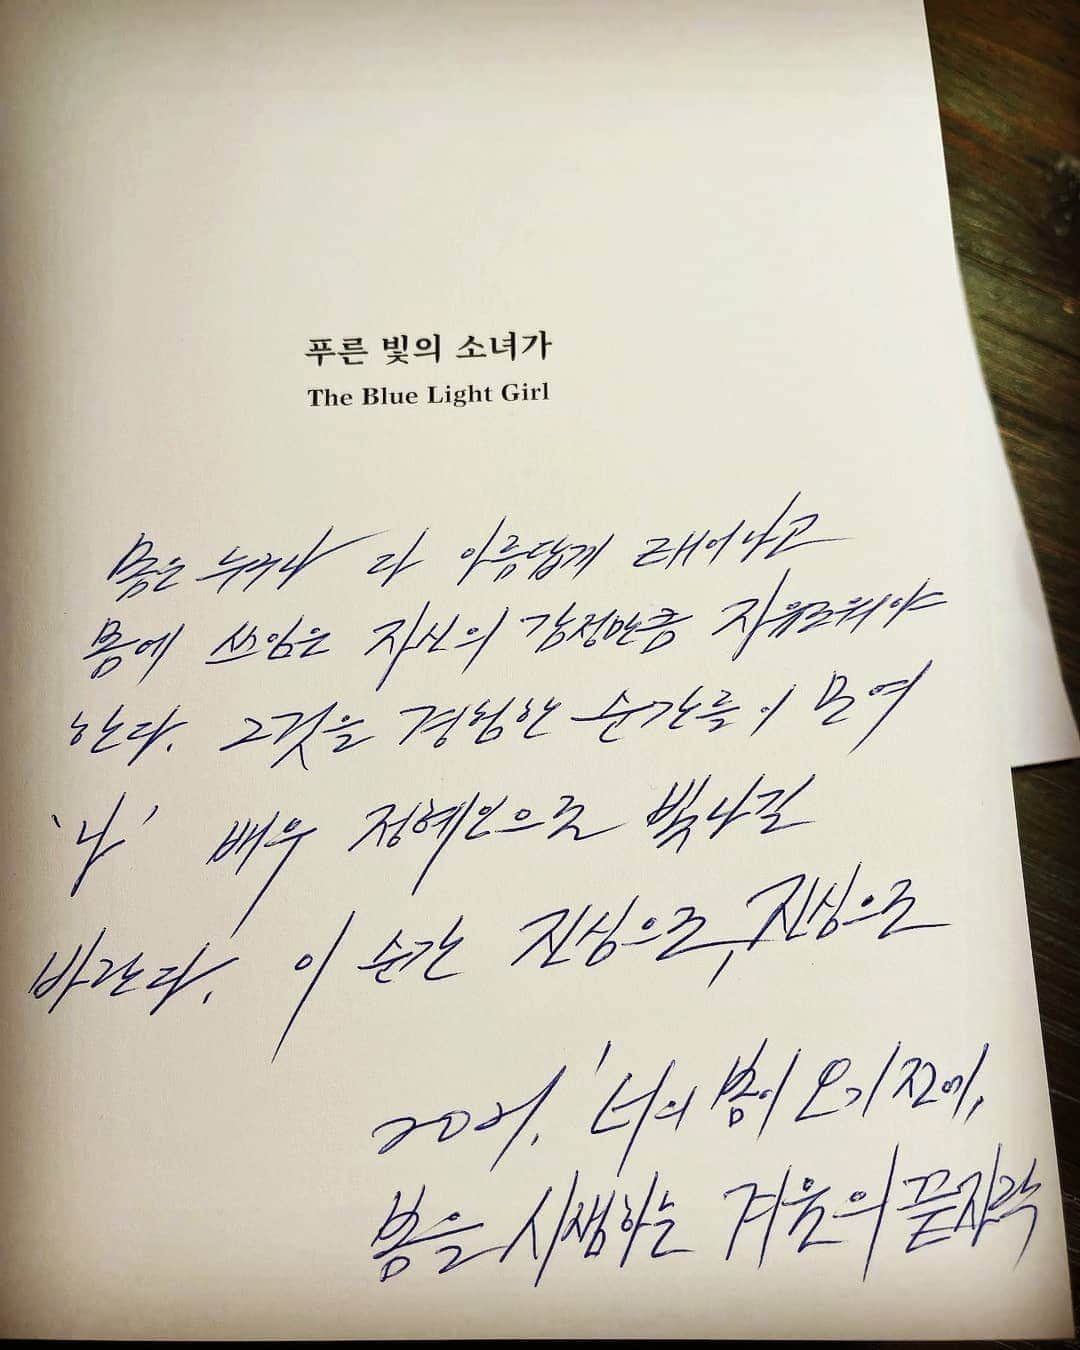 푸른 빛의 소녀가
The Blue Light Girl
몸은 누구나 다 아름답게 태어나고
몸에 쓰임은 자신의 감정만큼 자유로워야
한다. 그것을 경험한 순간들이 모여
'나' 배우 정혜인으로 빛나길
바란다. 이 순간 진심으로, 진심으로
2021. '너의 봄이 오기 전에,
봄을 시샘하는 겨울의 끝자락